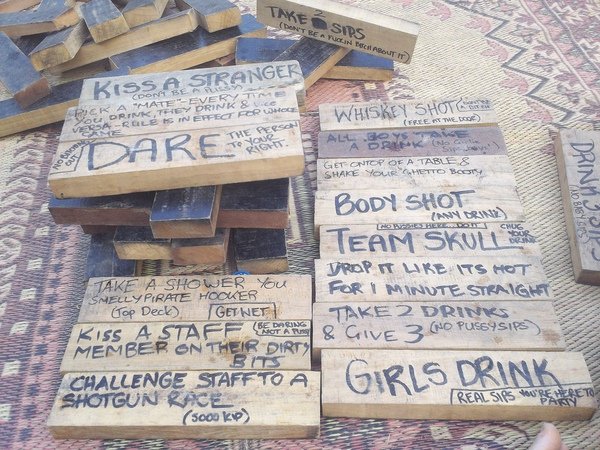 TAKE 2 SIPS
(DON'T BE A FUCKIN BITCH ABOUT IT)
KISS A STRANGER
(DON'T BE A PUSSY)
PICK A "MATE" - EVERY TIME
YOU DRINK, THEY DRINK & VICE
VERSA - RULE IS IN EFFECT FOR WHOLE
GAME
DARE THE PERSON
TO YOUR
RIGHT.
OUT
TAKE A SHOWER YOU
SMELLY PIRATE HOOKER
(TOP DECK) GET WET
KISS A STAFF (BE DARING
NOT A PUSSY)
MEMBER ON THEIR DIRTY
BITS
CHALLENGE STAFF TO A
SHOTGUN RACE
(5000 KIP)
WHISKEY SHOT
(FREE AT THE DOOR)
ALL BOYS TAKE
A DRINK
GET ONTOP OF A TABLE &
SHAKE YOUR GHETTO BOOTY
BODY SHOT
(ANY DRINK)
NO PUSSIES HERE... DO IT
TEAM SKULL CHUG
YOUR
DRINK
DROP IT LIKE ITS HOT
FOR 1 MINUTE STRAIGHT
TAKE 2 DRINKS
& GIVE 3 (NO PUSSY SIPS)
GIRLS DRINK
REAL SIPS YOU'RE HERE TO
PARTY
DRINK 3 SIPS